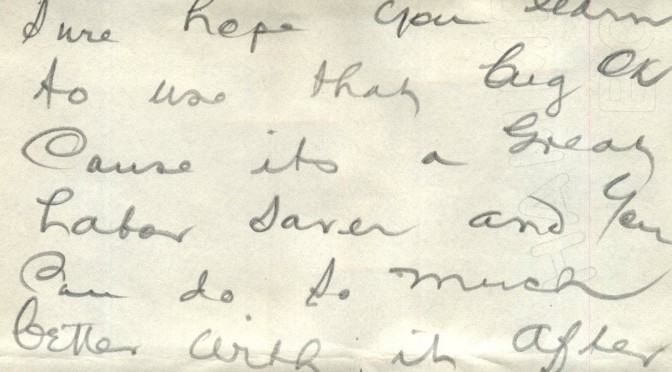 Sure hope you learn
to use that bug OK
Cause its a Great
Labor Saver and You
Can do so much
better with it after